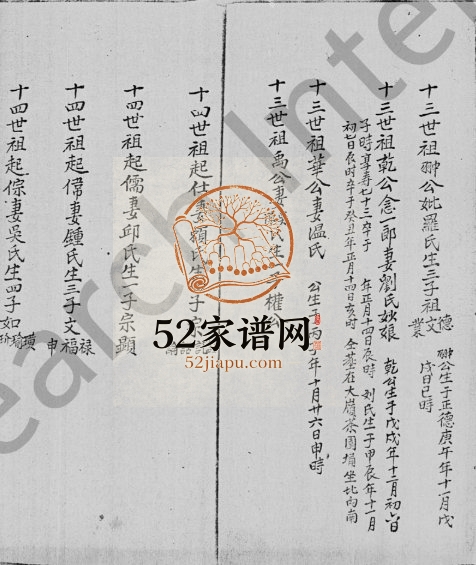 十三世祖翀公妣羅氏生三子祖德文業
翀公生于正德庚午年十一月戊戌日巳時
十三世祖乾公念一郎妻劉氏娘
乾公生于戊戌年十二月初六日
子時享壽七十三卒于年正月十四日辰時 刘氏生于甲辰年十一月
初七日辰時卒于癸丑年正月十四日亥時 合墓在大嶺茶園塌坐北向南
十三世祖華公妻温氏
公生于丙子年十月廿六日申時
十三世祖禹公妻氏生一子權公
十四世祖起仕妻賴氏生子宗
十四世祖起儒妻邱氏生一子宗顯
十四世祖起偉妻鍾氏生三子文禄福申
十四世祖起倧妻吳氏生四子如璜琦
52家谱网
52jiapu.com
earch Inte